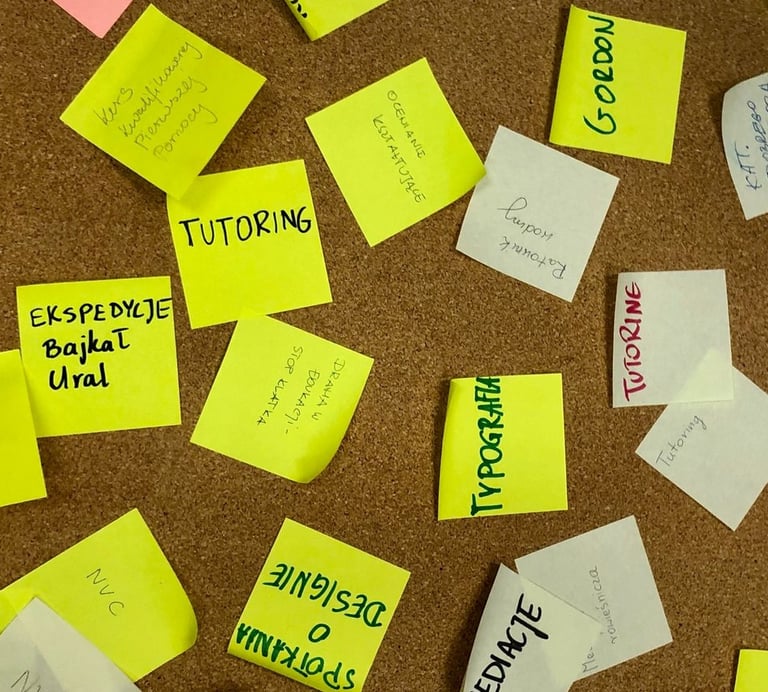 Kurs
Kwalifikowanej
Pierwszej
Pomocy
OCENIANIE
KSZTAŁTUJĄCE
GORDON
KAT.
TUTORING
Ratownik
wodny
EKSPEDYCJE
Bajkał
Ural
TUTORINE
DRAMA W
EDUKACJI -
STOP KLATKA
TYPOGRAFIA
Tutoring
NVC
SPOTKANIA
O
DESIGNIE
EDIACJE
Me-
rówieśnicza